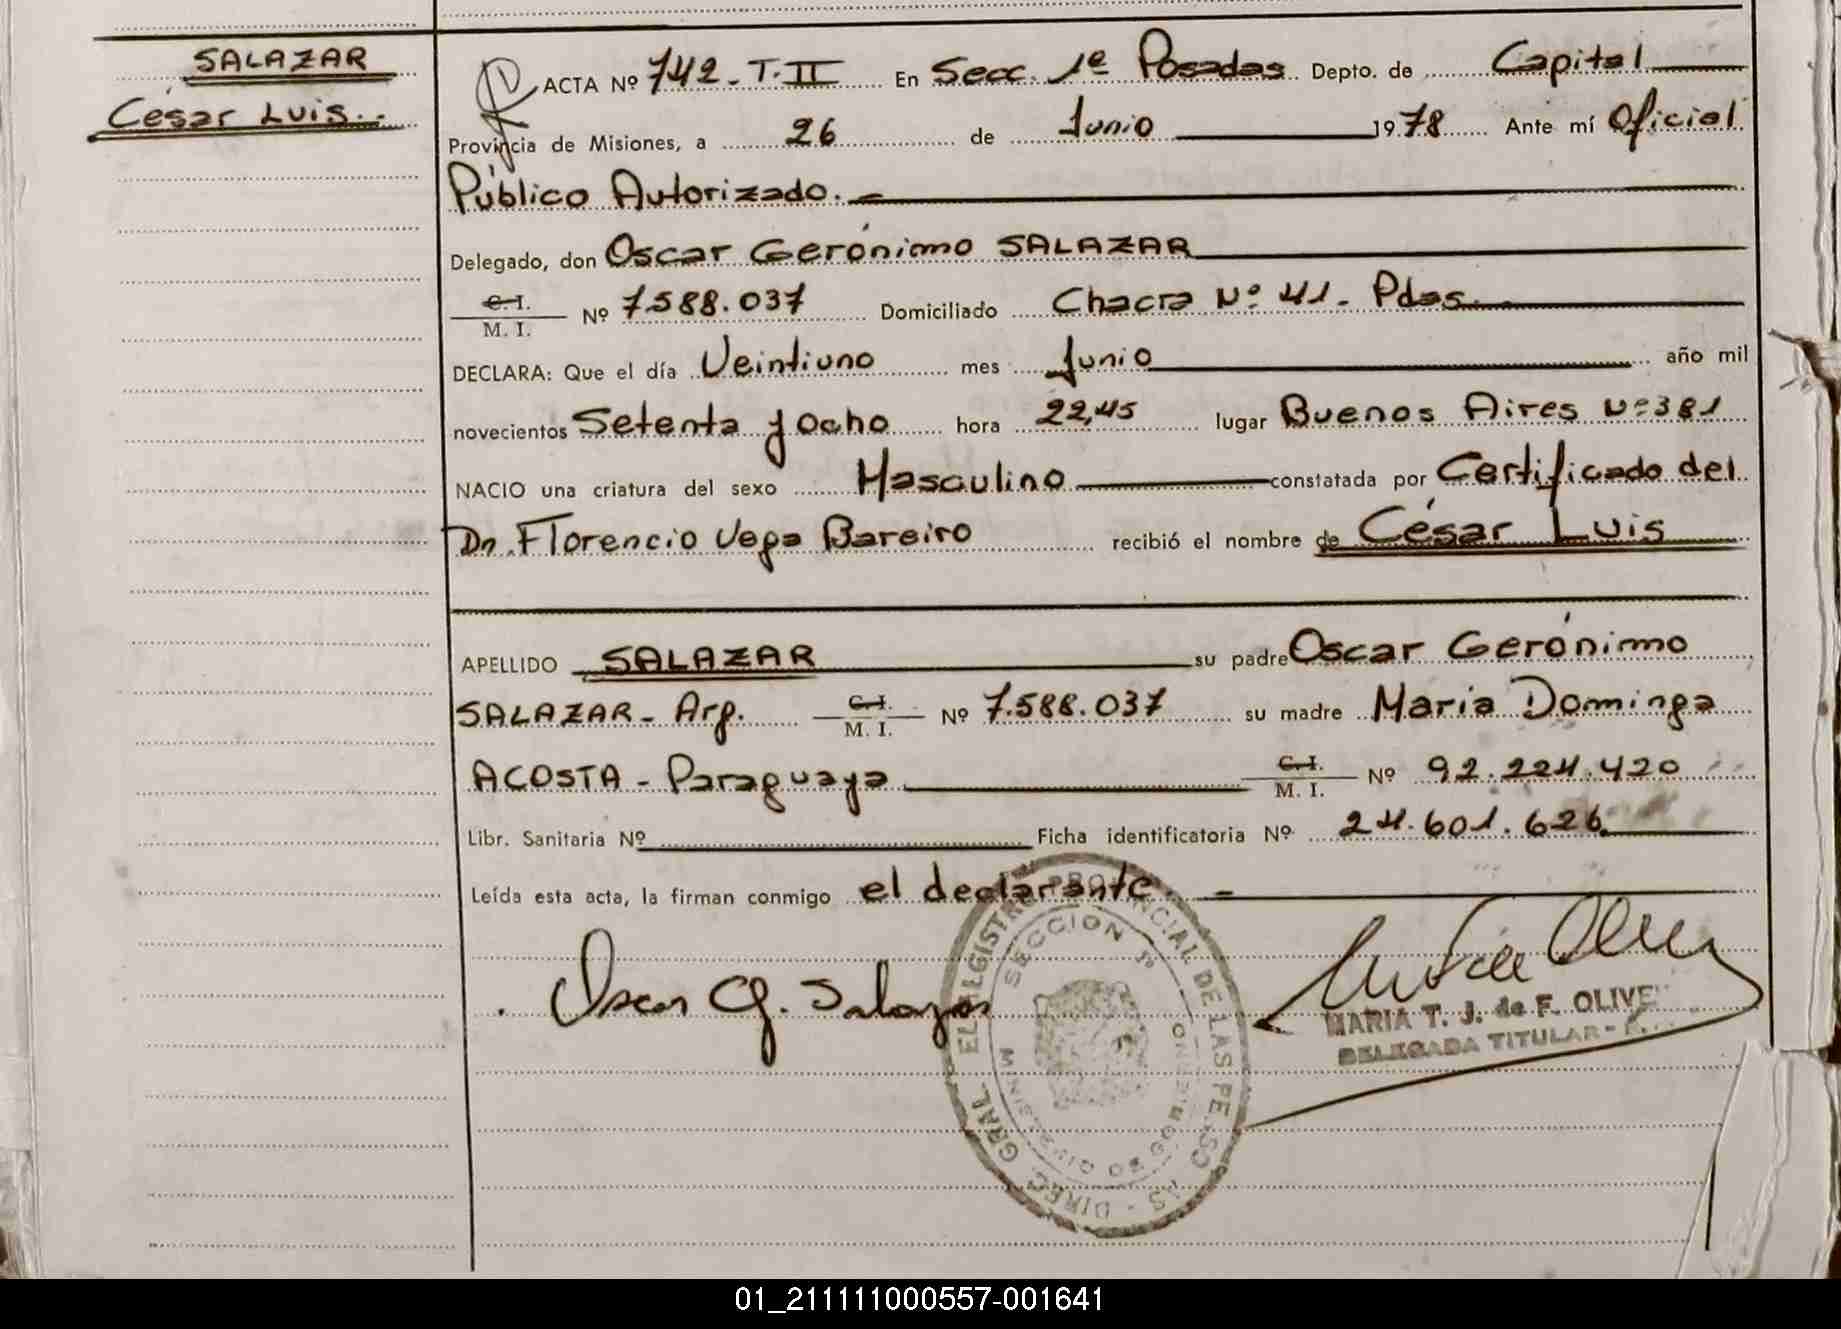 SALAZAR
César Luis.-
ACTA Nº 742-T-II En Secc. 1ª Posadas Depto. de Capital
Provincia de Misiones, a 26 de Junio 1978 Ante mí Oficial
Público Autorizado.-
Delegado, don Oscar Gerónimo SALAZAR
C.I.
M. I. Nº 7.588.037 Domiciliado Chacra Nº 41- Pdas.
DECLARA: Que el día Veintiuno mes Junio año mil
novecientos Setenta y Ocho hora 22,45 lugar Buenos Aires Nº 381
NACIO una criatura del sexo Masculino constatada por Certificado del
Dr. Florencio Vega Bareiro recibió el nombre de César Luis
APELLIDO SALAZAR su padre Oscar Gerónimo
SALAZAR- Arg. C.I.
M. I. Nº 7.588.037 su madre Maria Dominga
ACOSTA- Paraguaya C.I.
M. I. Nº 92.224.420
Libr. Sanitaria Nº Ficha identificatoria Nº 24.601.626
Leída esta acta, la firman conmigo el declarante.-
Oscar G. Salazar
MARIA T. J. de F. OLIVE
DELEGADA TITULAR -
DIREC. GRAL. DEL REGISTRO PROVINCIAL DE LAS PERSONAS
SECCION 1ª
01_211111000557-001641